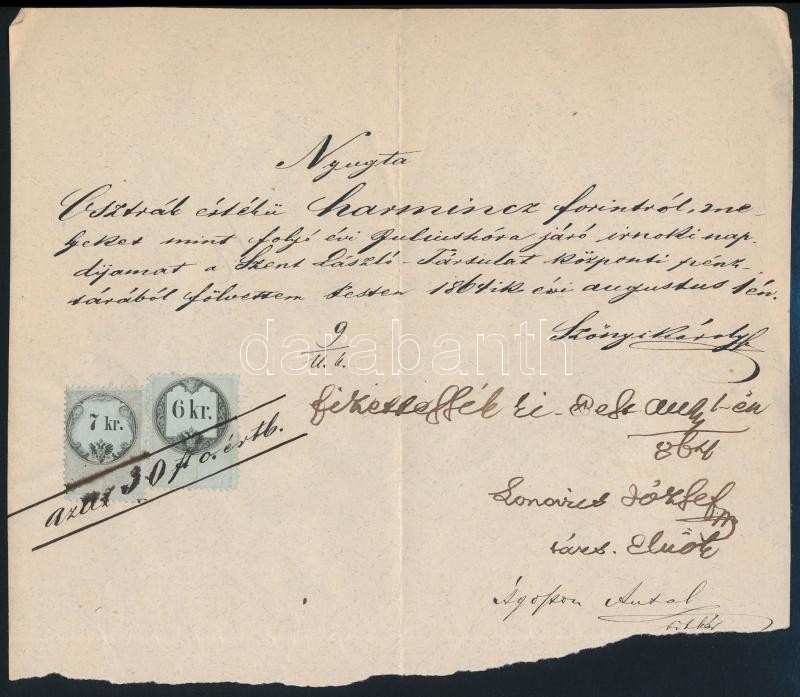 Nyugta
Osztrák értékű harmincz forintról, me-
lyeket mint folyó évi Juliushóra járó irnoki nap-
dijamat a Szent László-Társulat központi pénz-
tárából fölvettem Pesten 1864ik évi augustus 1én.
Szőnyi Károly
9
U. b.
darabanth
7 kr.
6 kr.
fizettessék ki - Pest aug 1-én
864
azaz 30 ft o. értb.
Lonovics József
társ. Elnök
Ágoston Antal
titkár